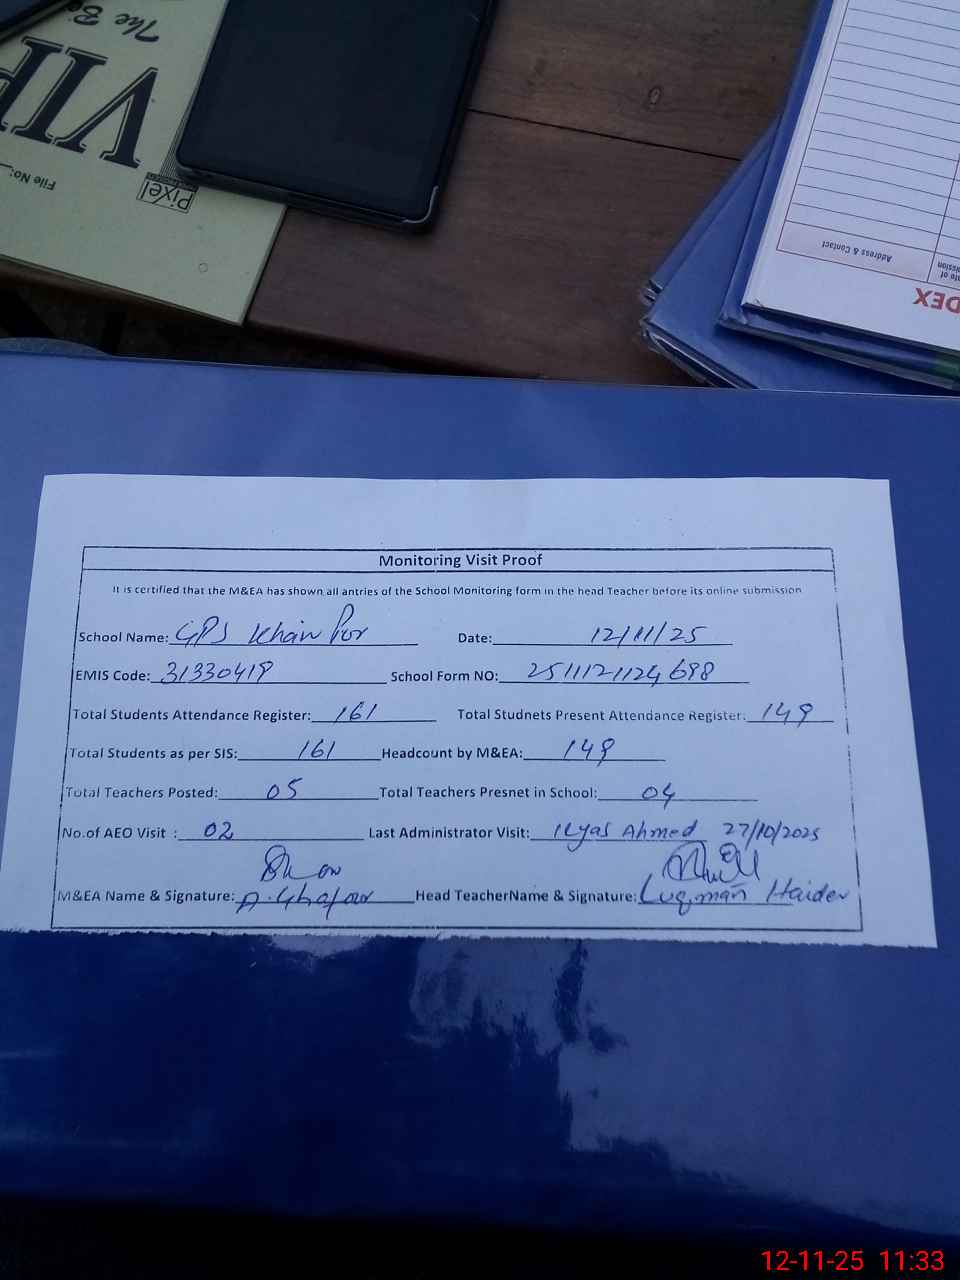 The Be
VIP
File No:
Pixel
Address & Contact
DEX
Monitoring Visit Proof
It is certified that the M&EA has shown all antries of the School Monitoring form in the head Teacher before its online submission
School Name: GPS Khan Por Date: 12/11/25
EMIS Code: 31330419 School Form NO: 2511121124698
Total Students Attendance Register: 161 Total Studnets Present Attendance Register: 149
Total Students as per SIS: 161 Headcount by M&EA: 149
Total Teachers Posted: 05 Total Teachers Presnet in School: 04
No.of AEO Visit : 02 Last Administrator Visit: Ilyas Ahmed 27/10/2025
M&EA Name & Signature: A. Ghafoor Head TeacherName & Signature: Luqman Haider
12-11-25 11:33